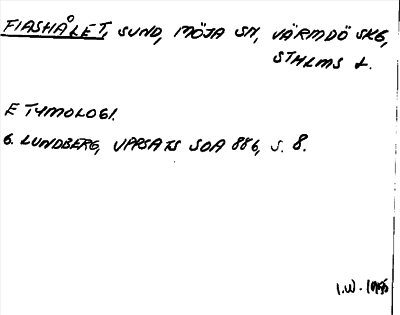 FIASHÅLET, SUND, MÖJA SN, VÄRMDÖ SKG,
STHLMS L.
ETYMOLOGI.
G. LUNDBERG, UPPSATS SOA 886, S. 8.
I.W.